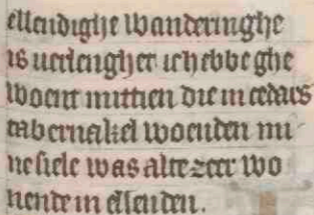 ellendighe wanderinghe
is uerlengher ic hebbe ghe
woent mittien die in cedars
tabernakel woenden mi
ne siele was alte zeer wo
nende in ellenden.